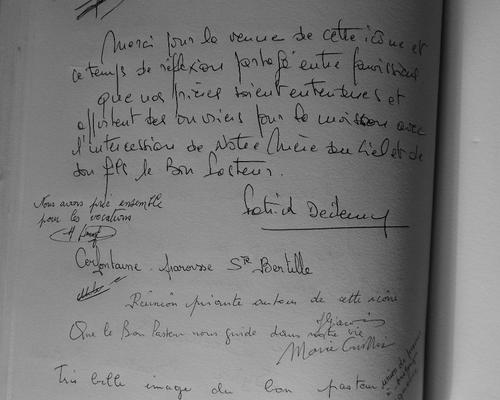 Merci pour la venue de cette icône et
ce temps de réflexion partagé entre paroissiens
que nos prières soient entendues et
apportent des ouvriers pour la moisson avec
l'intercession de Notre Mère du Ciel et de
son fils le Bon Pasteur.
Nous avons prié ensemble
pour les vocations
Patrick
Cerfontaine - paroisse Ste Bertille
Réunion priante autour de cette icône
Que le Bon Pasteur nous guide dans notre vie
Marie
Très belle image du bon pasteur